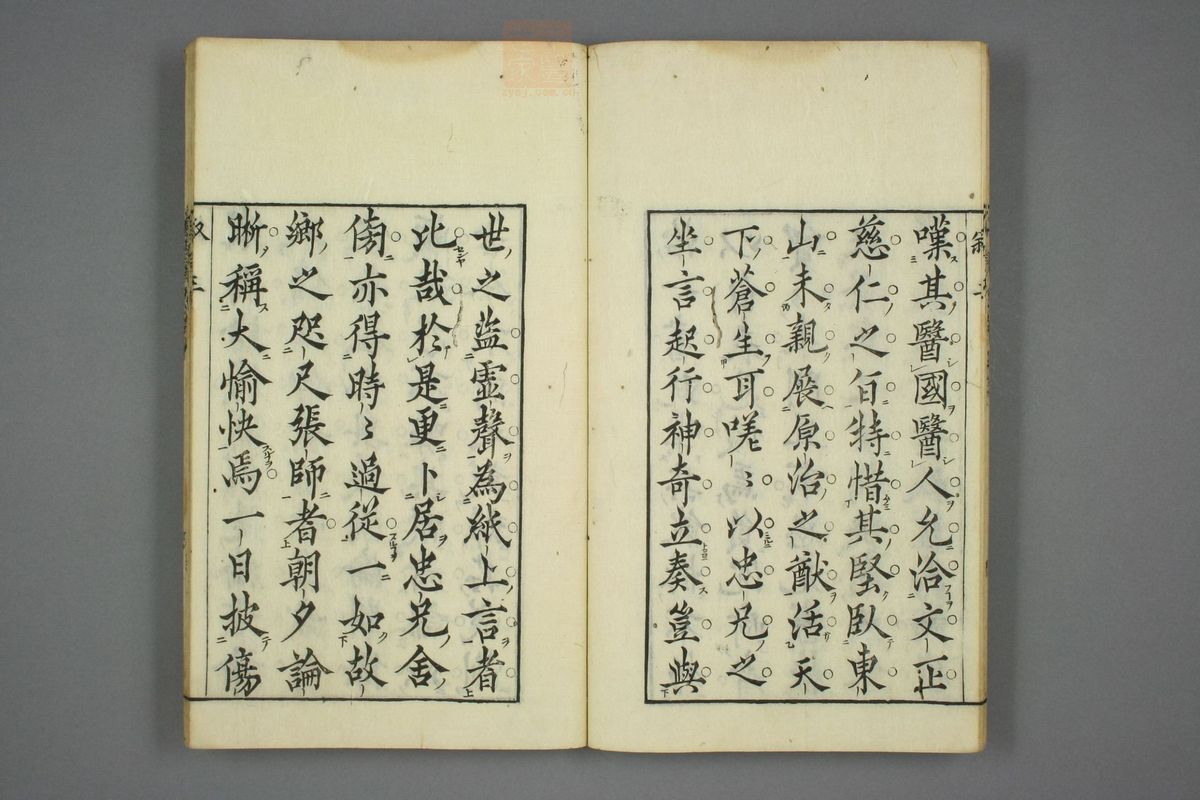 嘆其醫國醫人允洽文正
慈仁之旨特惜其堅臥東
山未親展原治之猷活天
下蒼生耳嗟〻以忠兄之
坐言起行神奇立奏豈與
世之盜虛聲為紙上言者
比哉於是更卜居忠兄舍
傍亦得時〻過從一如故
鄉之咫尺張師者朝夕論
晰稱大愉快焉一日披傷